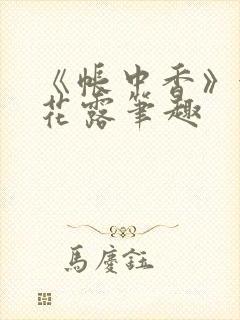 《帳中香》
花露筆趣
馬慶鈺